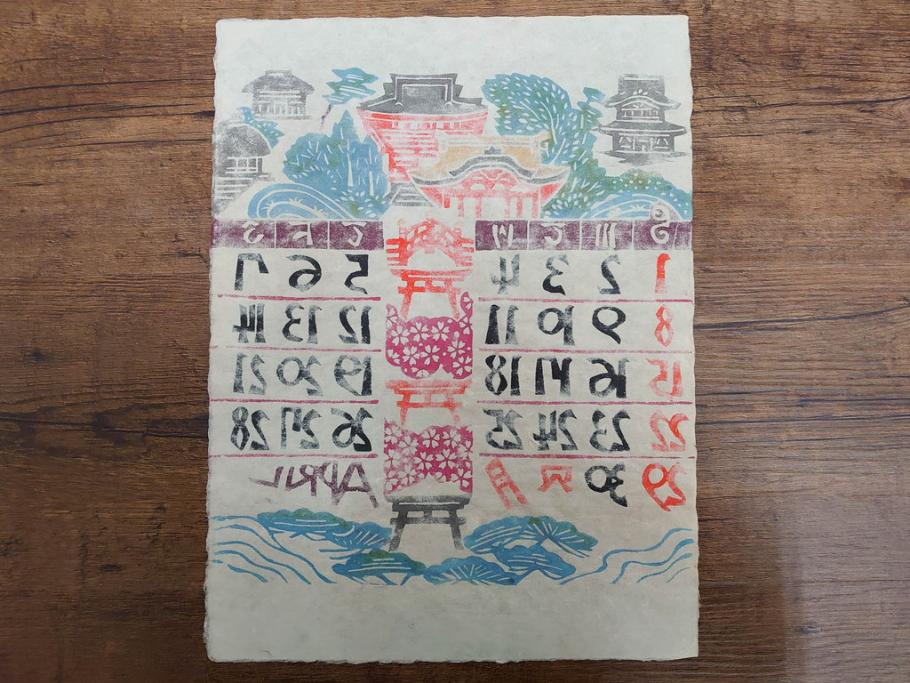 S M T W T F S
1 2 3 4 5 6 7
8 9 10 11 12 13 14
15 16 17 18 19 20 21
22 23 24 25 26 27 28
29 30 四月 APRIL